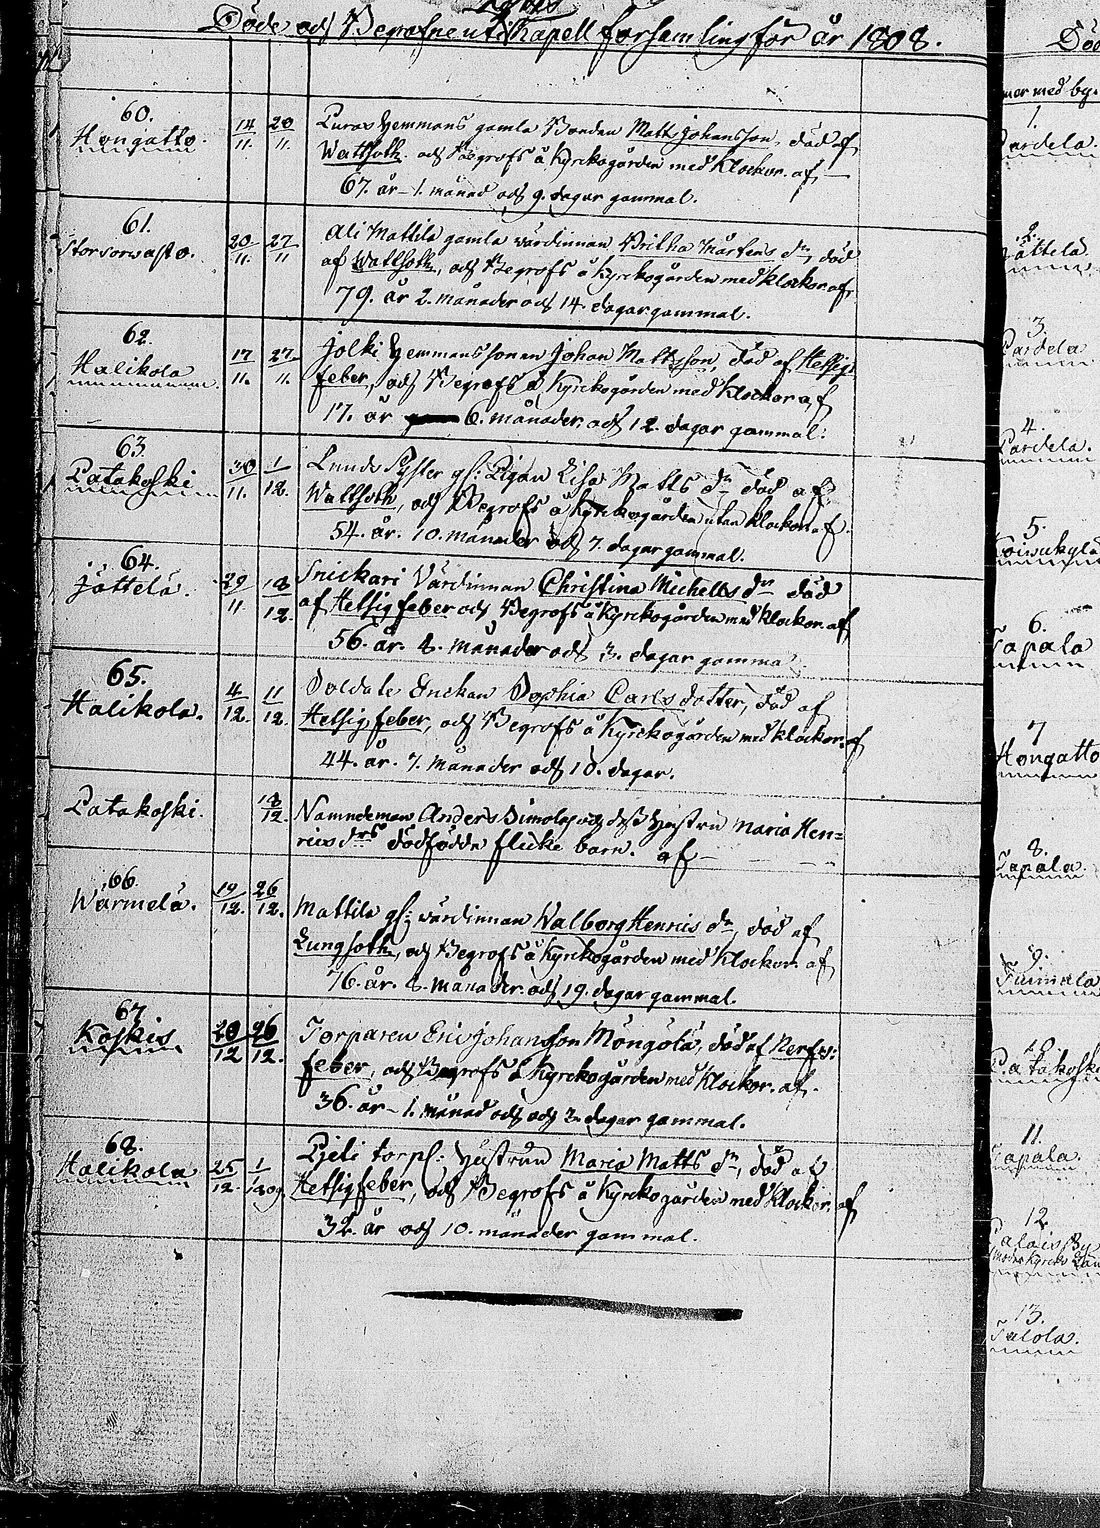 1808
Döde och Begrafne uti Kapell församling för år 1808.
60.
Hongatto.
14/11. 20/11.
Puras Hemmans gamla Bonden Matts Johansson, död af
Wattsoth och Begrofs å Kyrckogården med Klockor. af
67. år 1. månad och 9. dagar gammal.
61.
Storsorwasto.
20/11. 27/11
Ali Mattila gamla wärdinnan Britha Mårtens dr, död
af Wattsoth, och Begrofs å Kyrckogården med Klockor. af
79. år 2. månader och 14. dagar gammal.
62.
Halikola
17/11. 27/11.
Jolki Hemmans sonen Johan Mattsson, död af Hetsig
feber, och Begrofs å Kyrckogården med Klockor af
17. år 6. månader och 12. dagar gammal.
63.
Patakoski
30/11. 1/12.
Lunds Syster gl: Pigan Lisa Matts dr död af
Wattsoth, och Begrofs å Kyrckogården utan Klockor. af
54. år. 10. månader och 7. dagar gammal.
64.
Jättelä.
29/11 18/12.
Snickari Värdinnan Christina Michells dr död
af Hetsig feber och Begrofs å Kyrckogården med Klockor. af
56. år. 8. månader och 3. dagar gamma
65.
Halikola.
4/12. 11/12.
Soldate Enckan Sophia Carls dotter, död af
Hetsig feber, och Begrofs å Kyrckogården med Klockor. af
44. år. 7. månader och 10. dagar.
Patakoski.
18/12.
Nämndeman Anders Simola och dess Hustru Maria Hen=
rics drs dödfödde flicke barn. af
66.
Wärmelä.
19/12. 26/12.
Mattila gl: wärdinnan Walborg Henrics dr, död af
Lungsoth, och Begrofs å Kyrckogården med Klockor. af
76. år. 8. månader och 19. dagar gammal.
67.
Koskis
20/12 26/12.
Torparen Eric Johansson Möngölä, död af Nerfve:
feber, och Begrofs å Kyrckogården med Klockor. af.
36. år 1. månad och och 2 dagar gammal.
68.
Halikola
25/12. 1/1809
Pjeli torp: Hustrun Maria Matts dr, död af
Hetsig feber, och Begrofs å Kyrckogården med Klockor. af
32. år och 10. månader gammal.
Död
med by.
1.
Pardela.
2.
Jättelä
3.
Pardela
4.
Pardela.
5.
6.
Tapala
7
Hongatto
8.
Tapala.
9.
Tuimala
10
Patakoski
11.
Tapala.
12.
13.
Talola.